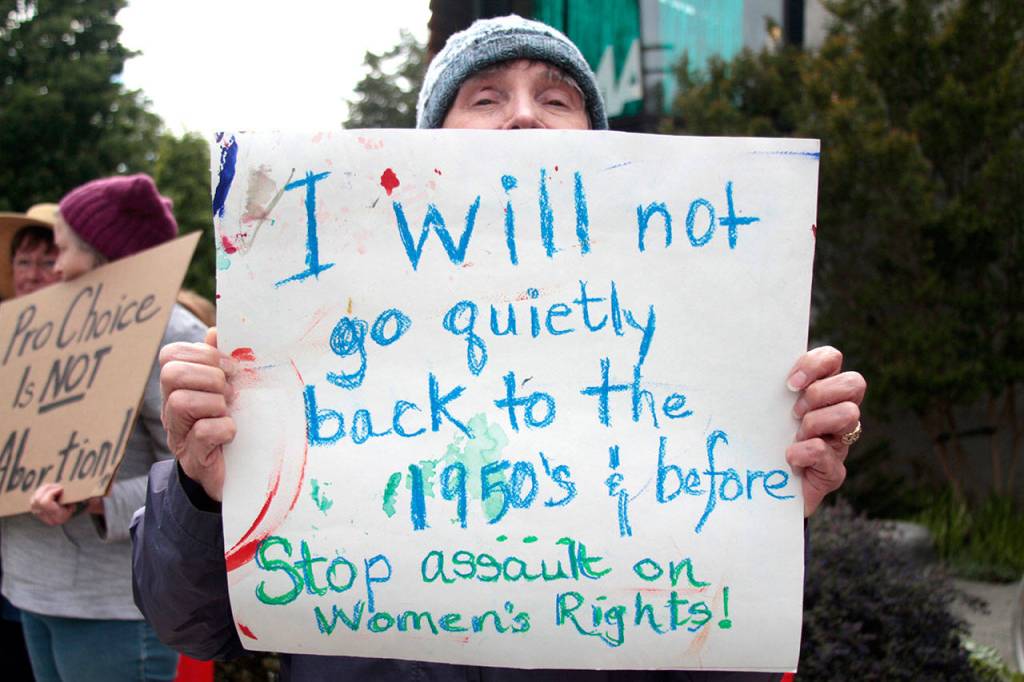 I will not
go quietly
back to the
1950's & before
Stop assault on
Women's Rights!
Pro Choice
Is NOT
Abortion!